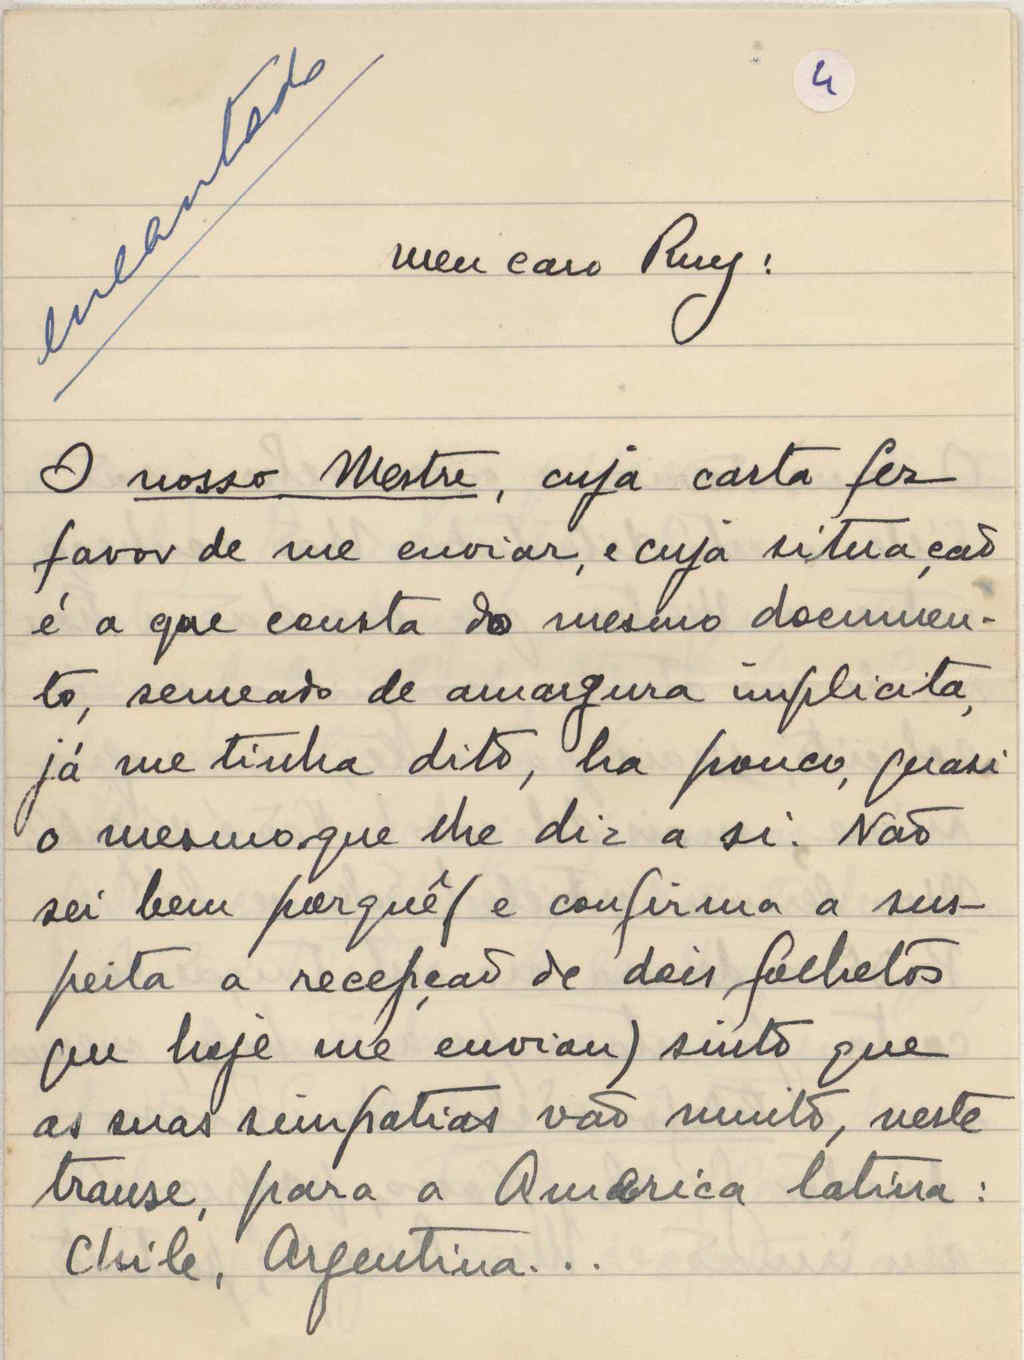 encantado
4
meu caro Ruy:
O nosso Mestre, cuja carta fez
favor de me enviar, e cuja situação
é a que consta do mesmo documen-
to, semeado de amargura implicita,
já me tinha dito, ha pouco, quasi
o mesmo que lhe diz a si. Não
sei bem porquê (e confirma a sus-
peita a recepção de dois folhetos
que hoje me enviou) sinto que
as suas simpatias vão muito, neste
transe, para a America latina:
Chile, Argentina...